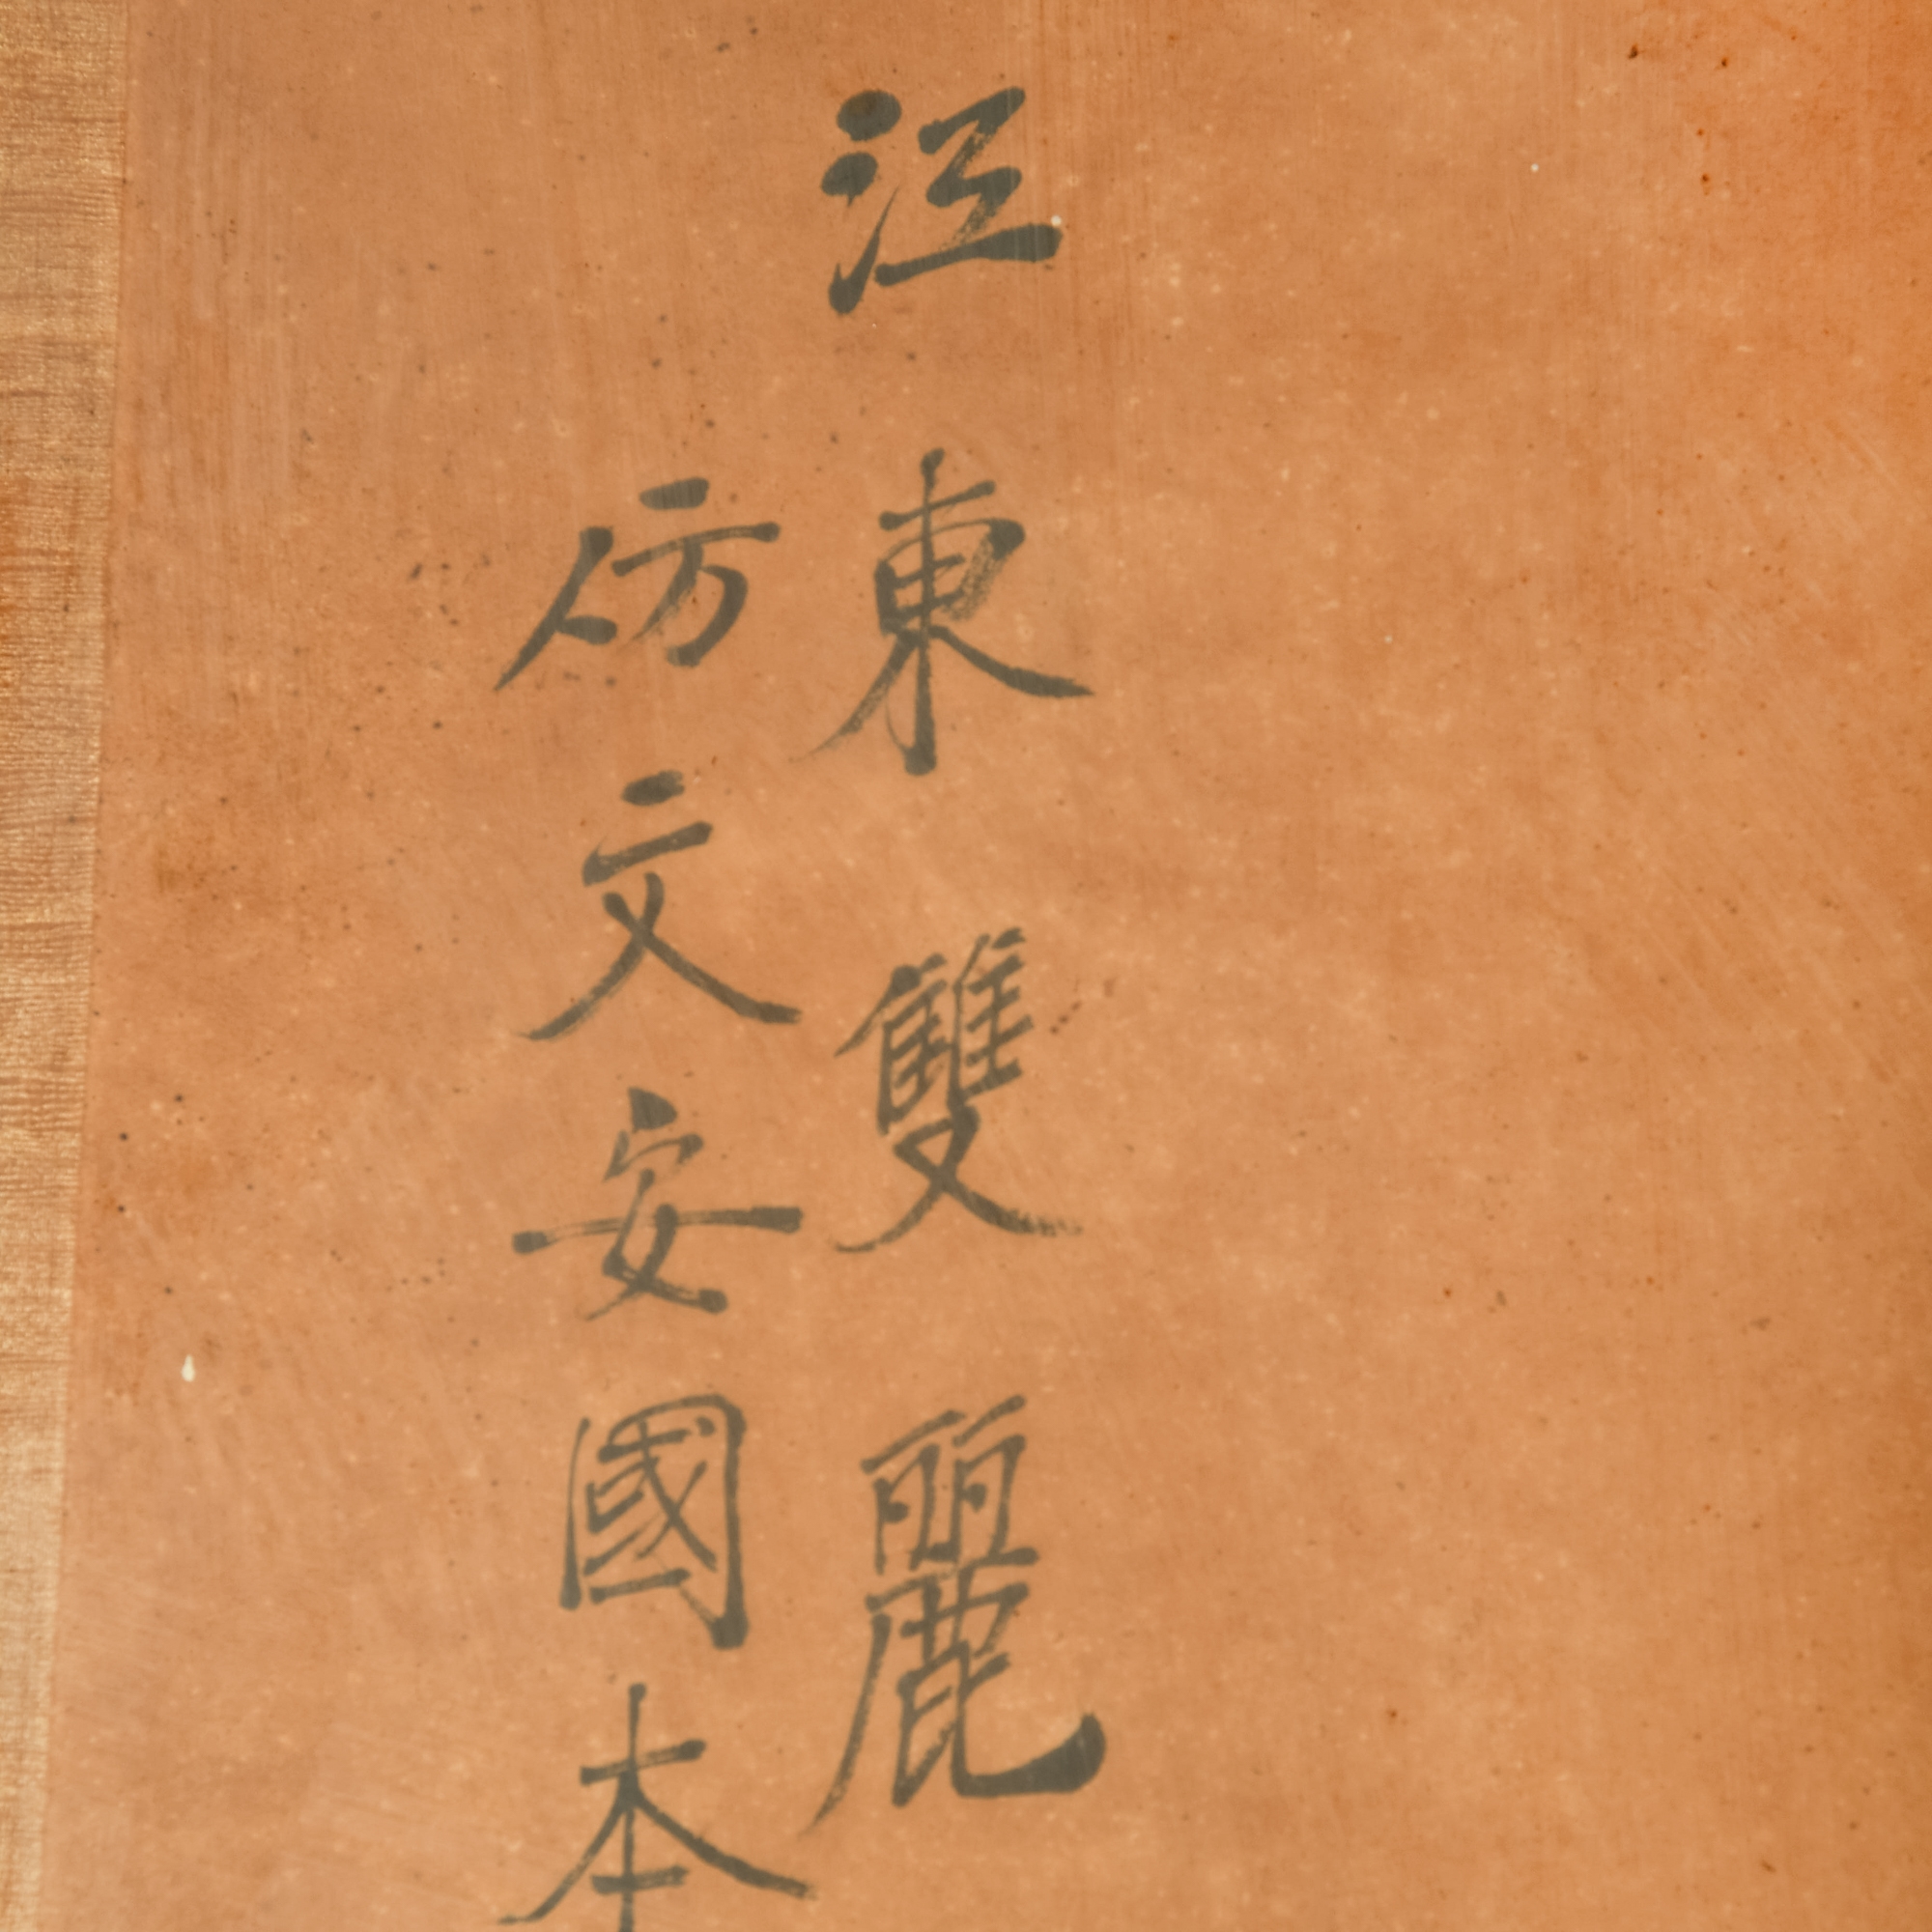 江東雙麗
仿文安國本